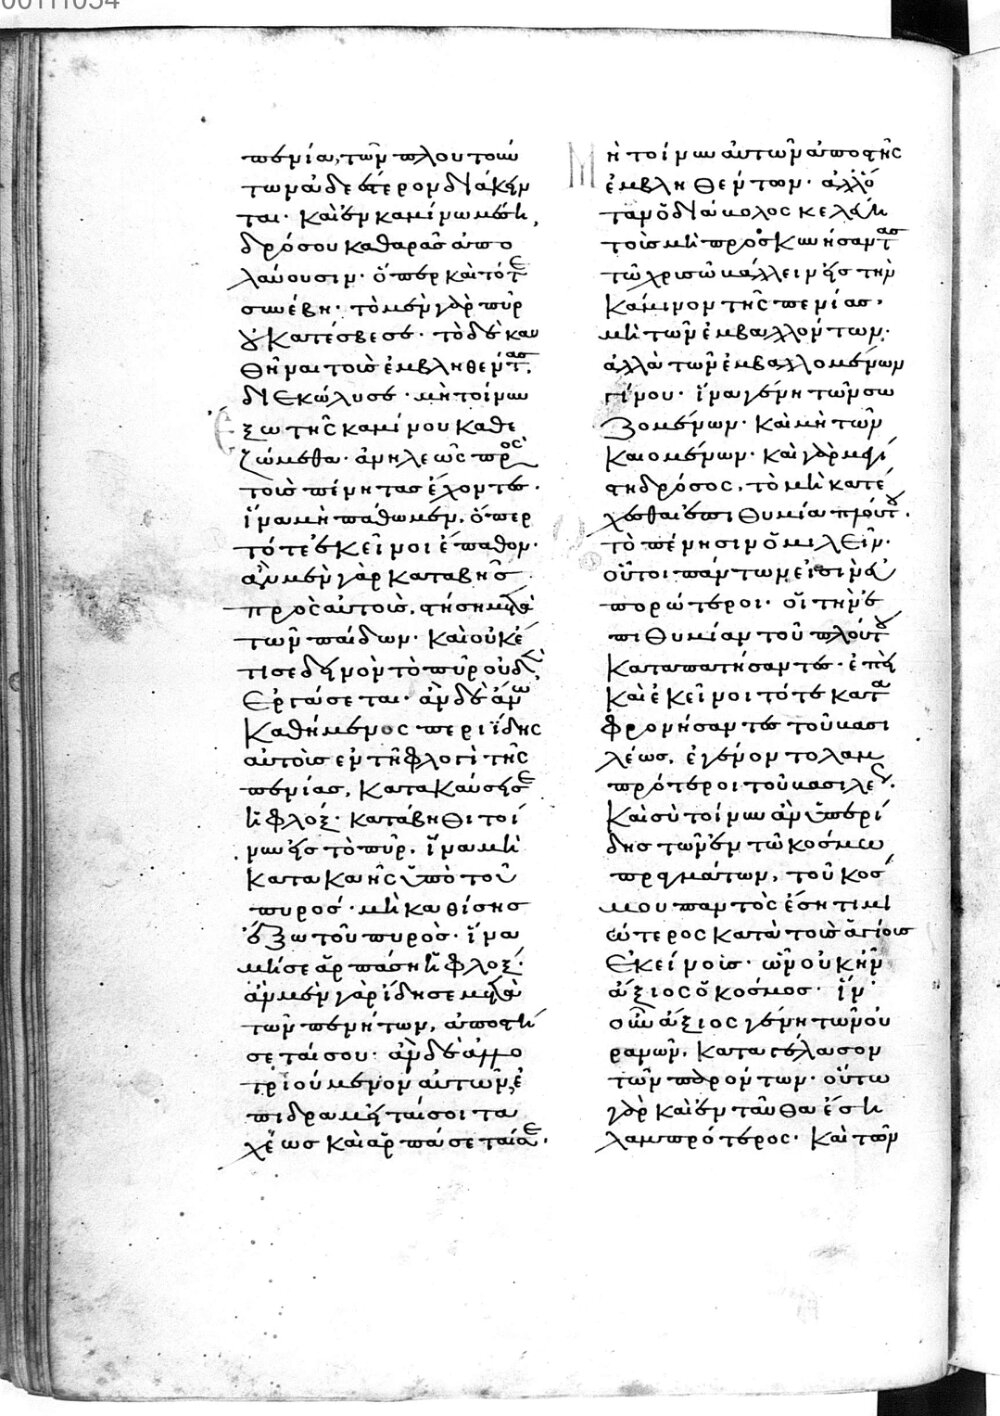 00111054
πενία, τῶν πλουτούν
των ἀδεέστερον διάκειν
ται· καὶ ἐν καμίνω μέση,
δρόσου καθαρᾶς ἀπο
λαύουσιν· ὅπερ καὶ τότε
συνέβη· τὸ μὲν γὰρ πῦρ
οὐ κατέσβεσε· τὸ δὲ καυ
θῆναι τοὺς ἐμβληθέντας,
διεκώλυσε· μὴ τοίνυν
ἔξω τῆς καμίνου καθε
ζώμεθα· ἀνηλεῶς πρὸς
τοὺς πένητας ἔχοντες·
ἵνα μὴ πάθωμεν, ὅπερ
τότε ἐκεῖνοι ἔπαθον·
ἂν μὲν γὰρ καταβῆς
πρὸς αὐτοὺς, στήση μετὰ
τῶν παίδων· καὶ οὐκέ
τι σε δεινὸν τὸ πῦρ οὐδὲν
ἐργάσεται· ἂν δὲ ἄνω
καθήμενος περιίδης
αὐτοὺς ἐν τῆ φλογὶ τῆς
πενίας, κατακαύσει σε
ἡ φλόξ· κατάβηθι τοί
νυν εἰς τὸ πῦρ, ἵνα μὴ
κατακαῆς ὑπὸ τοῦ
πυρός· μὴ καθίσης
ἔξω τοῦ πυρὸς· ἵνα
μή σε ἁρπάση ἡ φλόξ·
ἂν μὲν γὰρ ἴδη σε μετὰ
τῶν πενήτων, ἀποστή
σεταί σου· ἂν δὲ ἀλλο
τριούμενον αὐτῶν, ἐ
πιδραμεῖταί σοι τα
χέως καὶ ἁρπάσεταί σε·
Μὴ τοίνυν αὐτῶν ἀποστῆς
ἐμβληθέντων· ἀλλ' ὅ
ταν ὁ διάβολος κελεύη
τοὺς μὴ προσκυνήσαντας
τῶ χρυσῶ βάλλειν εἰς τὴν
κάμινον τῆς πενίας,
μὴ τῶν ἐμβαλλόντων·
ἀλλὰ τῶν ἐμβαλλομένων
γίνου· ἵνα γένη τῶν σω
ζομένων· καὶ μὴ τῶν
καιομένων· καὶ γὰρ μεγί
στη δρόσος, τὸ μὴ κατέ
χεσθαι ἐπιθυμία πλούτου·
τὸ πένησιν ὁμιλεῖν·
οὗτοι πάντων εἰσὶν εὐ
πορώτεροι· οἱ τὴν ἐ
πιθυμίαν τοῦ πλούτου
καταπατήσαντες· ἐπεὶ
καὶ ἐκεῖνοι τότε κατα
φρονήσαντες τοῦ βασι
λέως, ἐγένοντο λαμ
πρότεροι τοῦ βασιλέως.
Καὶ σὺ τοίνυν ἂν ὑπερί
δης τῶν ἐν τῶ κόσμω
πραγμάτων, τοῦ κόσ
μου παντὸς ἔση τιμι
ώτερος κατὰ τοὺς ἁγίους
ἐκείνους· ὧν οὐκ ἦν
ἄξιος ὁ κόσμος· ἵν'
οὖν ἄξιος γένη τῶν οὐ
ρανῶν, καταγέλασον
τῶν παρόντων· οὕτω
γὰρ καὶ ἐνταῦθα ἔση
λαμπρότερος· καὶ τῶν